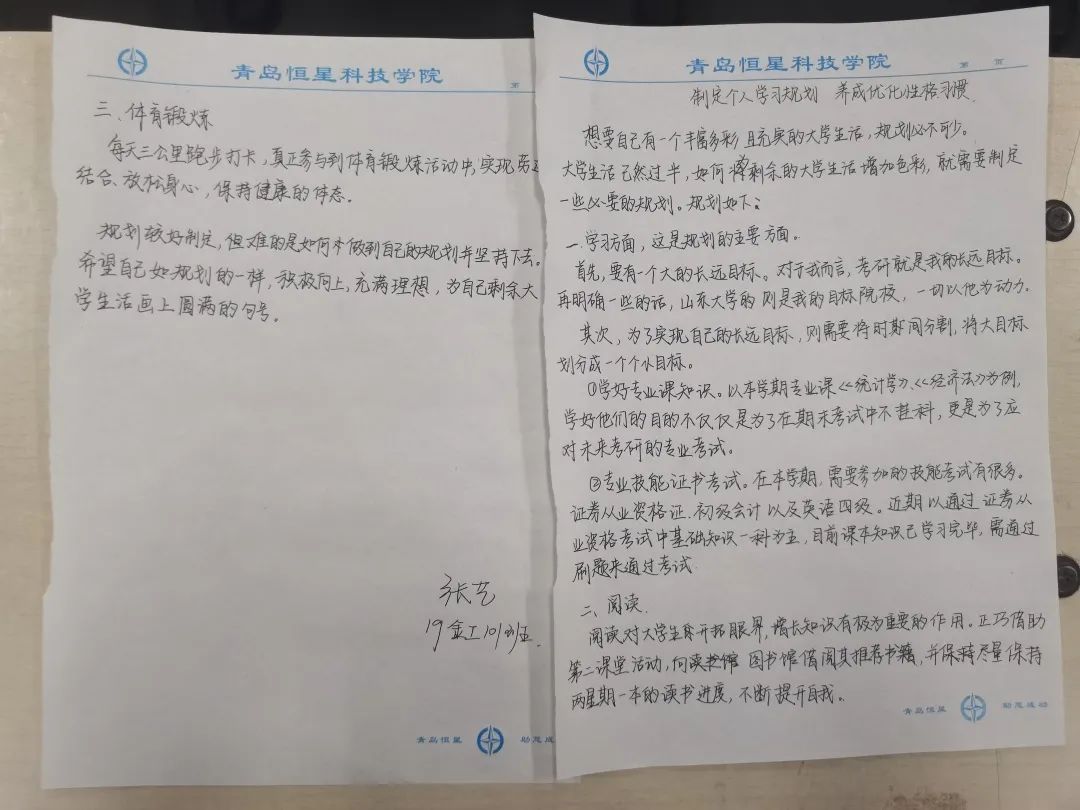 青岛恒星科技学院
第 页
制定个人学习规划 养成优化性格习惯
想要自己有一个丰富多彩且充实的大学生活，规划必不可少。
大学生活已然过半，如何将剩余的大学生活增加色彩，就需要制定
一些必要的规划。规划如下：
一.学习方面，这是规划的主要方面。
首先，要有一个大的长远目标。对于我而言，考研就是我的长远目标。
再明确一些的话，山东大学的则是我的目标院校，一切以他为动力.
其次，为了实现自己的长远目标，则需要将时期间分割，将大目标
划分成一个个小目标。
①学好专业课知识。以本学期专业课《统计学》、《经济法》为例，
学好他们的目的不仅仅是为了在期末考试中不挂科，更是为了应
对未来考研的专业考试。
②专业技能证书考试。在本学期，需要参加的技能考试有很多。
证券从业资格证.初级会计以及英语四级。近期以通过证券从
业资格考试中基础知识一科为主，目前课本知识已学习完毕，需通过
刷题来通过考试.
二、阅读.
阅读对大学生来开拓眼界，增长知识有极为重要的作用。正巧借助
第二课堂活动，向 图书馆借阅其推荐书籍，并保持尽量保持
两星期一本的读书进度，不断提升自我。
青岛恒星 助您成功
青岛恒星科技学院
第
三、体育锻炼
每天三公里跑步打卡，真正参与到体育锻炼活动中，实现劳逸
结合、放松身心，保持健康的体态。
规划较好制定，但难的是如何本做到自己的规划并坚持下去。
希望自己如规划的一样，积极向上，充满理想，为自己剩余大
学生活画上圆满的句号。
张艺
19金工101班.
青岛恒星 助您成